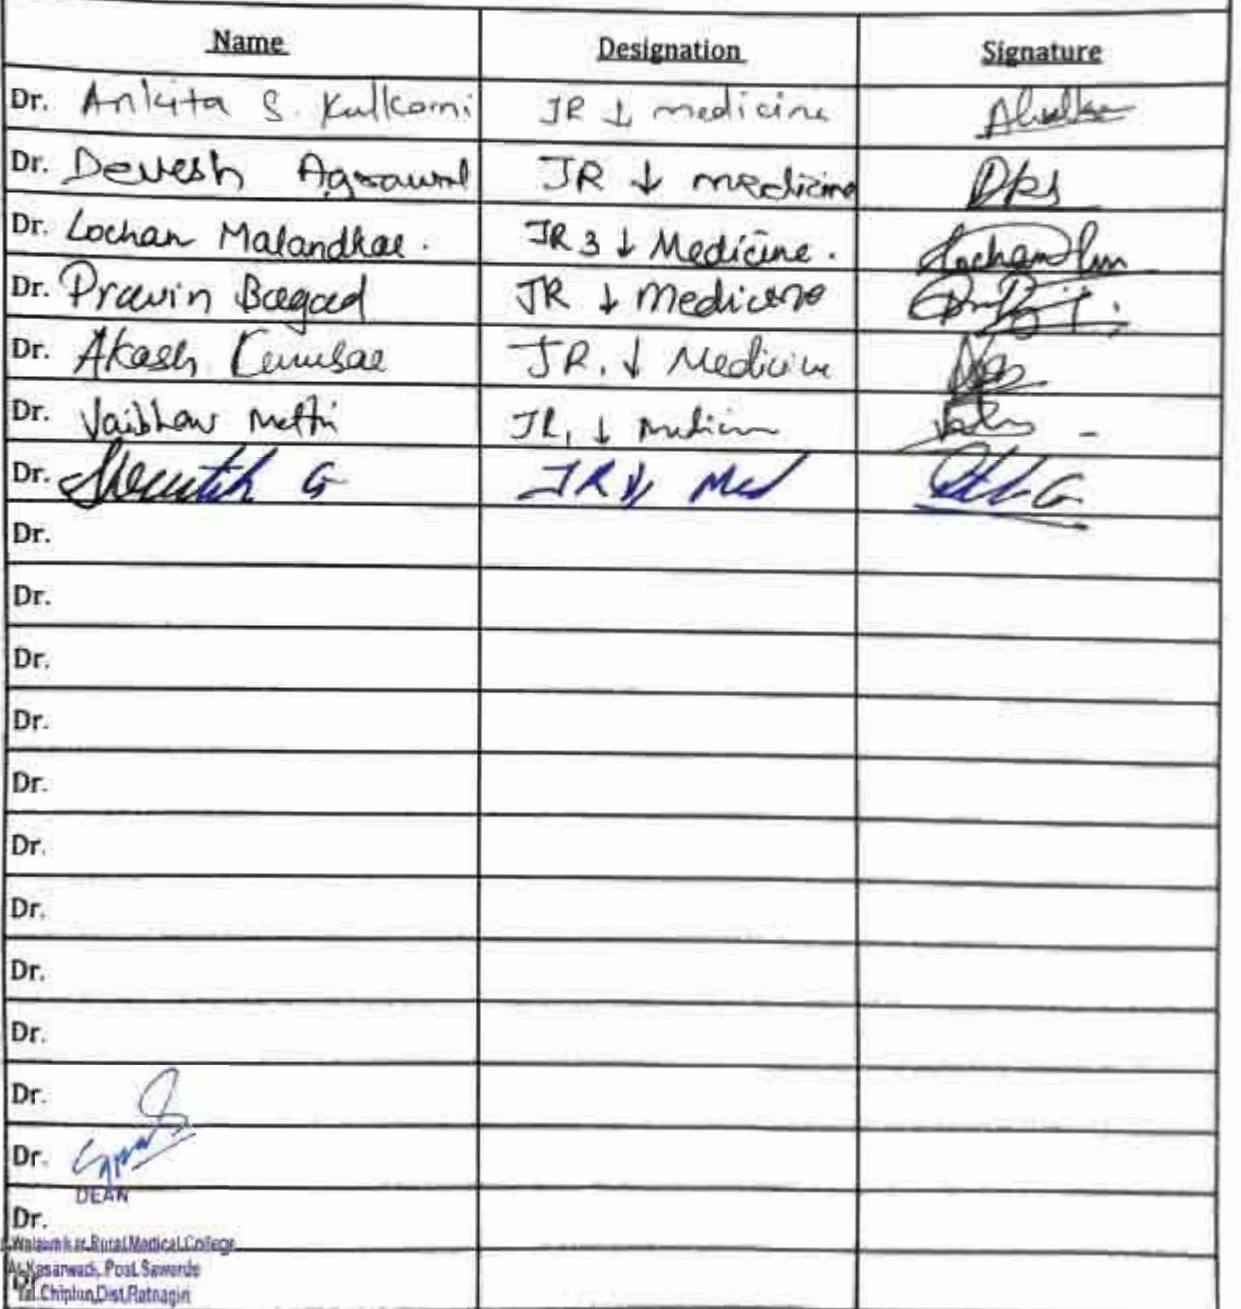 Name Designation Signature
Dr. Ankita S. Kulkarni JR ↓ medicine
Dr. Devesh Agrawal JR ↓ medicine
Dr. Lochan Malandkar. JR 3 ↓ Medicine.
Dr. Pravin Bagad JR ↓ Medicine
Dr. Akash JR. ↓ Medicine
Dr. Vaibhav JR, ↓ Medicine
Dr. G JR Med
Dr.
Dr.
Dr.
Dr.
Dr.
Dr.
Dr.
Dr.
Dr.
Dr.
Dr.
DEAN
Dr.
Walawalkar Rural Medical College
At.Kasarwadi, Post.Sawarde
Dr.
Tal.Chiplun,Dist.Ratnagiri